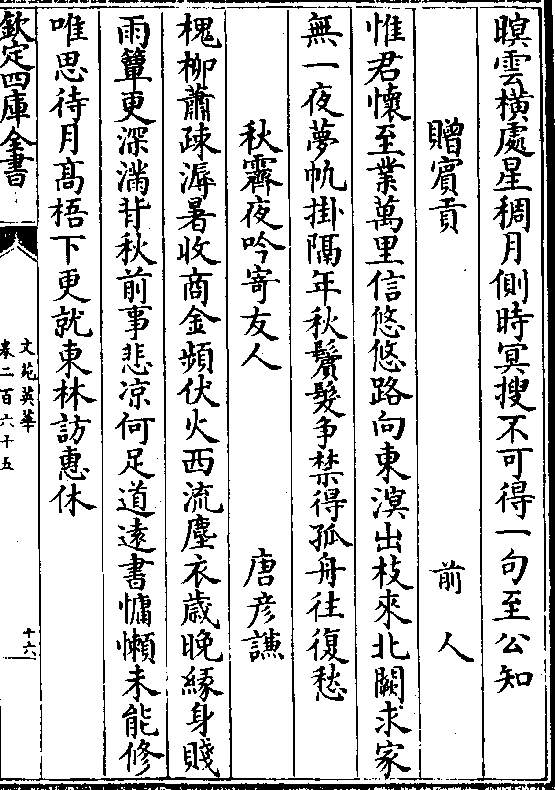 暝雲橫處星稠月側時冥搜不可得一句至公知
贈賓貢 前人
惟君懷至業萬里信悠悠路向東溟出枝來北闕求家
無一夜夢帆掛隔年秋鬢髮爭禁得孤舟往復愁
秋霽夜吟寄友人 唐彦謙
槐柳蕭疎溽暑收商金頻伏火西流塵衣歳晚緣身賤
雨簟更深滿背秋前事悲凉何足道遠書慵懶未能修
唯思待月髙梧下更就東林訪惠休
欽定四庫全書
文苑英華
卷二百六十五
十六